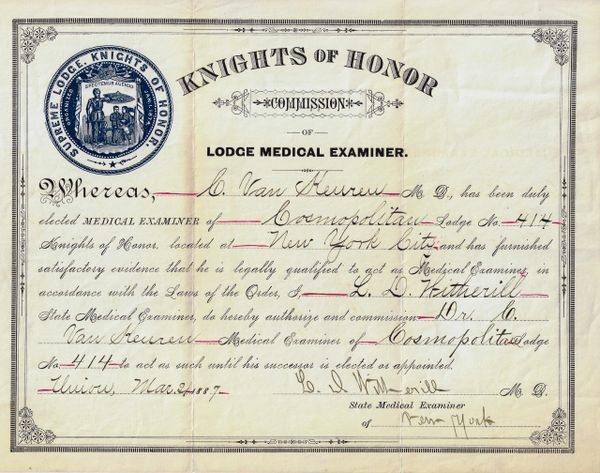 SUPREME LODGE, KNIGHTS OF HONOR.
KNIGHTS OF HONOR
COMMISSION
OF
LODGE MEDICAL EXAMINER.
Whereas, C. Van Keuren M. D., has been duly
elected MEDICAL EXAMINER of Cosmopolitan Lodge No. 414
Knights of Honor, located at New York City and has furnished
satisfactory evidence that he is legally qualified to act as Medical Examiner, in
accordance with the Laws of the Order, I, L. D. Witherill
State Medical Examiner, do hereby authorize and commission Dr. C.
Van Keuren Medical Examiner of Cosmopolitan Lodge
No. 414 to act as such until his successor is elected or appointed.
Union, Mar. 1887 L. D. Witherill M. D.
State Medical Examiner
of New York